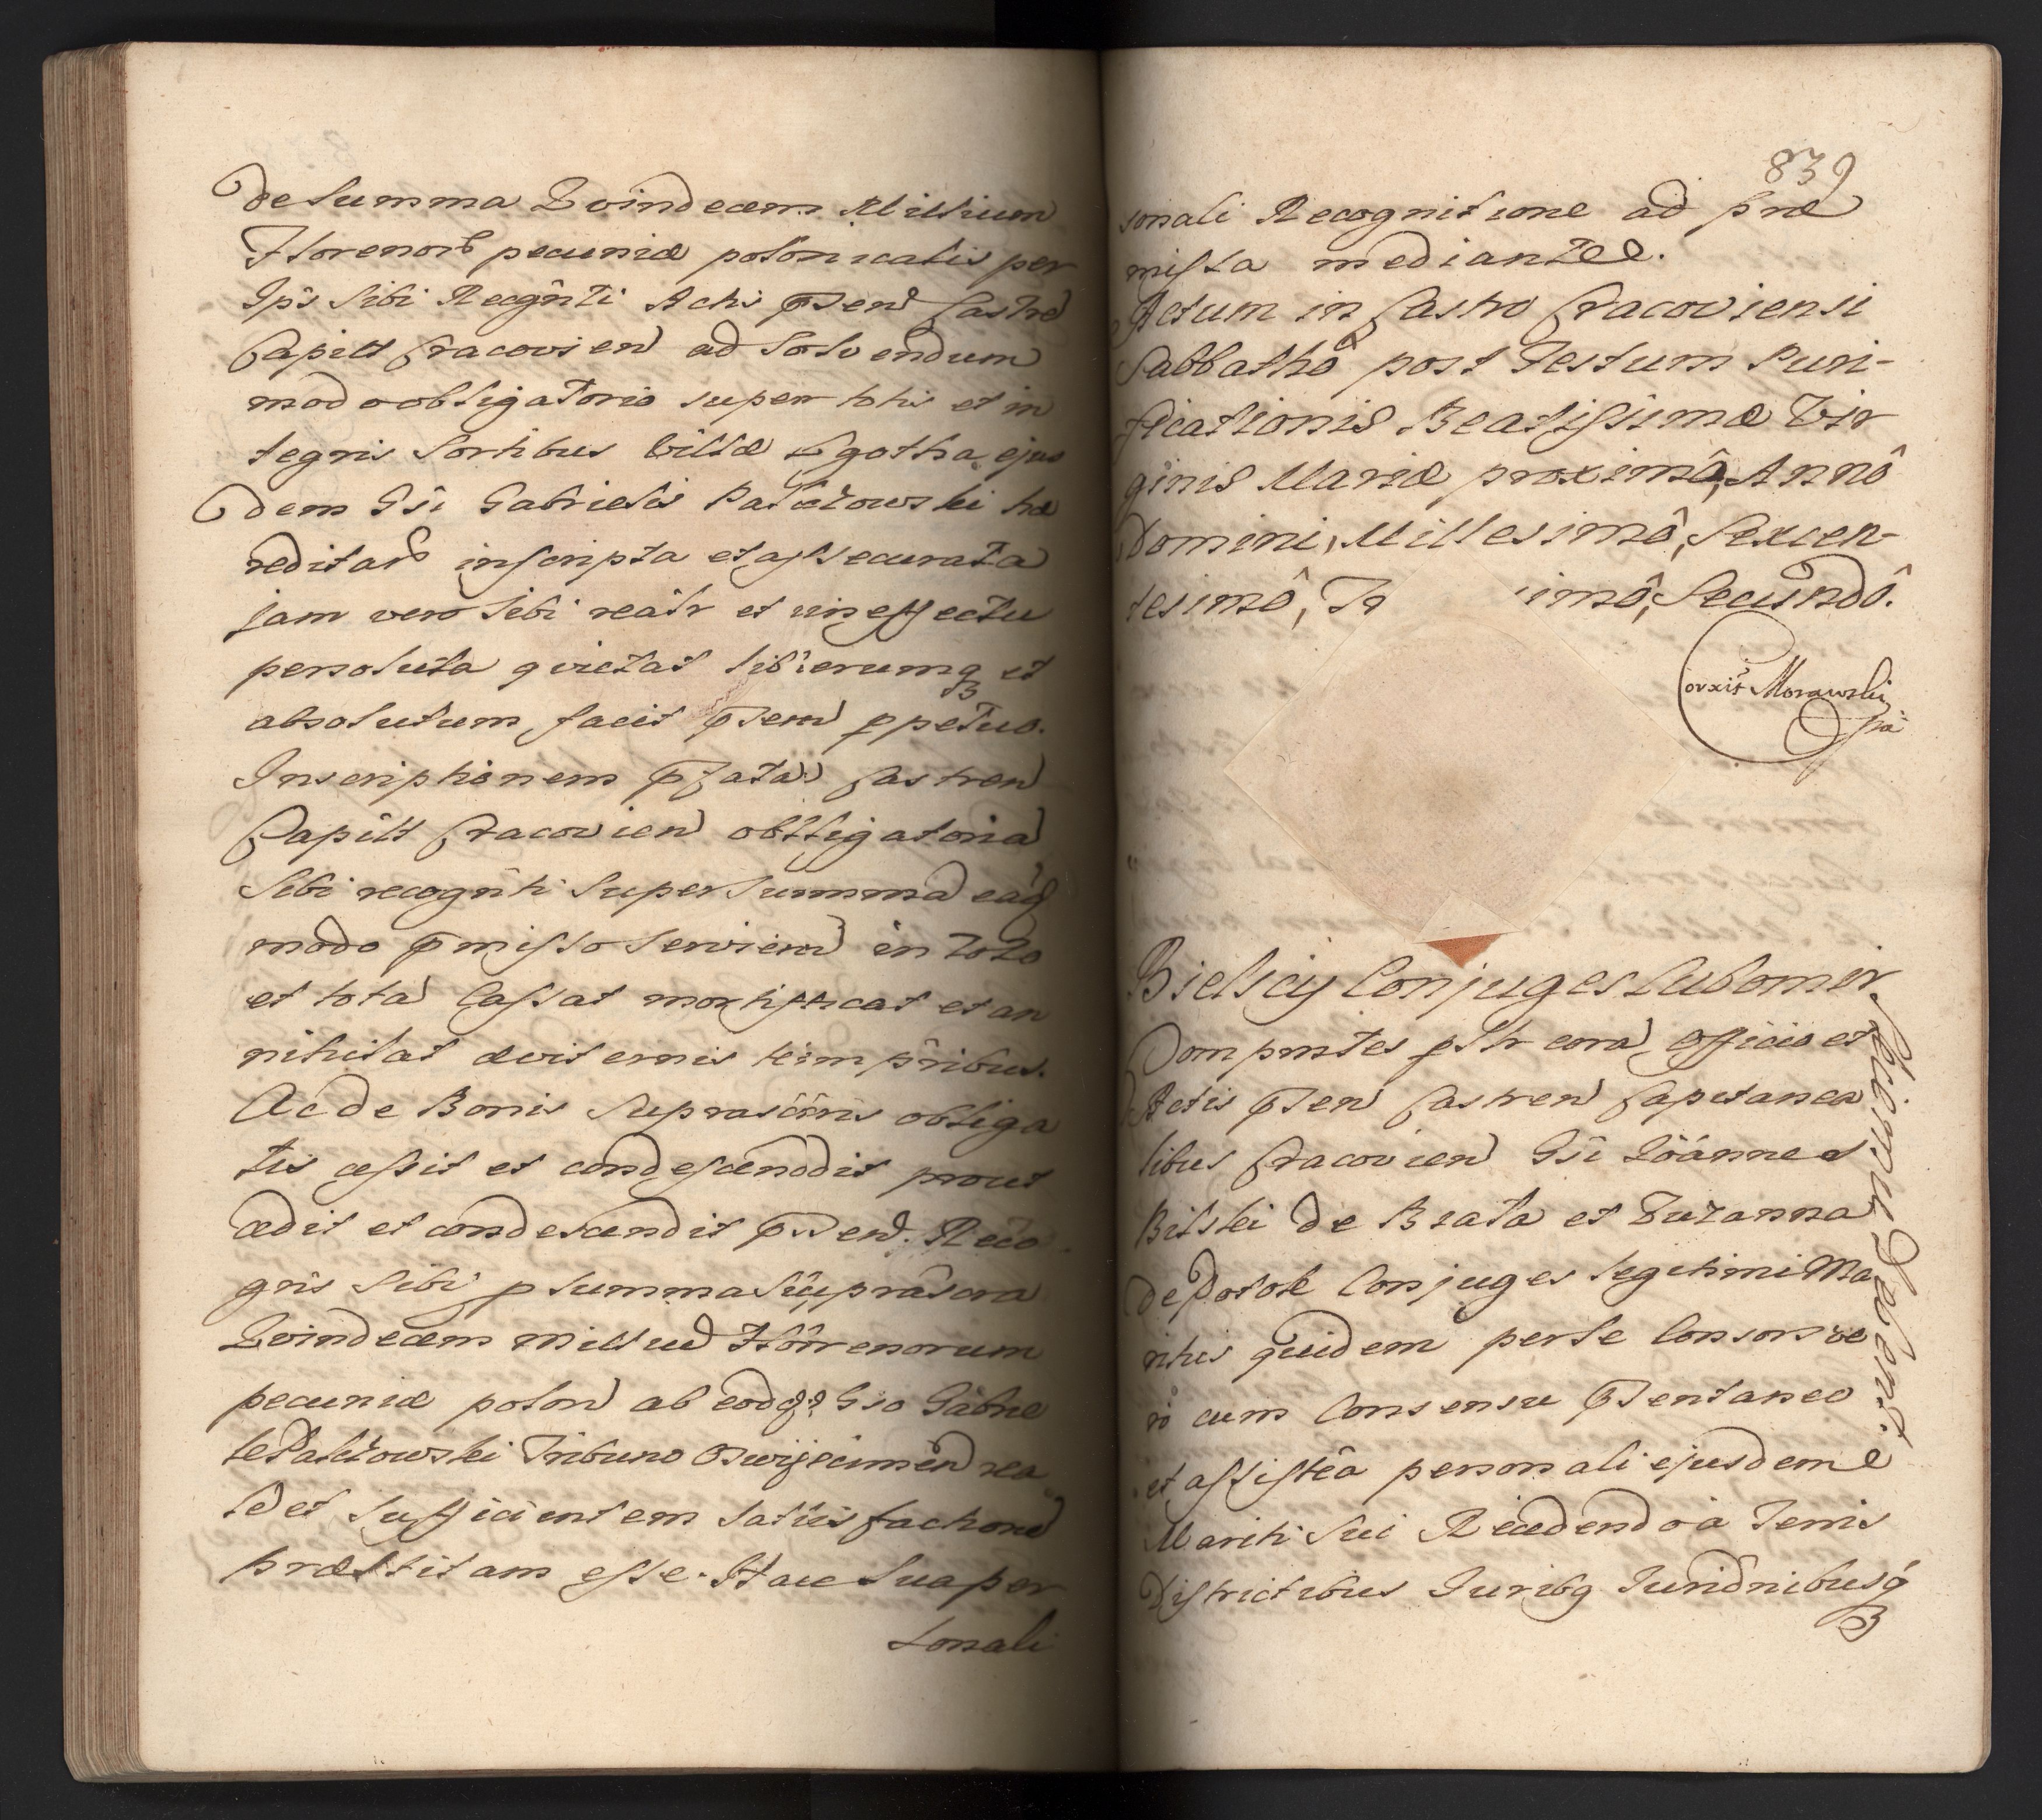 de Summa Qvindecem Millium
Florenorũ pecuniæ polonicalis per
Ips̃ Sibi Recgn̂ti Actis p̃sen Castre
Capitt Cracovien ad Solvendum
modo obligatorio super totis et in
tegris Sortibus Villæ Lgotha ejus
dem Gsi Gabrielis Palczowski hæ
reditar inscripta et assecurata
jam vero sibi realr et in effectu
persoluta qvietat liberumq et
absolutum facit p̃sen ppetuo.
Inscriptionem p̃fata Castren
Capitt Cracovien obligatoria
Sibi recogn̂ti Super Summa eaq
modo p̃misso servien in toto
et tota Cassat mortificat et an
nihilat æviternis temp̃ribus.
Ac de Bonis Suprascr̃is obliga
tis cessit et condescendit prout
cedit et condescendit p̃sen. Reco
gn̂s Sibi p Summa Suprascra
Qvindecem milliu Florenorum
pecuniæ polon ab eodq Gso Gabrie
le Palczowski Tribuno Oswijecimen rea
le et Sufficientem Satisfactione
præstitam esse. Hac Sua per
sonali
839
sonali Recognitione ad præ
missa mediante.
Actum in Castro Cracoviensi
Sabbathô post Festum Puri-
ficationis Beatissimæ Vir
ginis Mariæ proximô, Annô
Domini, Millesimô, Sexcen-
tesimô, imô, Secundô.
Corxit Morawski
Bielscij Conjuges Lubomir
skiemu Inscribunt
Compntes pslr cora officio et
Actis p̃sen Castren Capitanea
libus Cracovien Gsi Joannes
Bilski de Brata et Zuzanna
de Potok Conjuges legitimi Ma
ritus quidem per se Consors ve
ro cum Consensu p̃sentaneo
et assistêa personali ejusdem
Mariti Sui Recedendo a Terris
Districtibus Juribq Juridnibusq